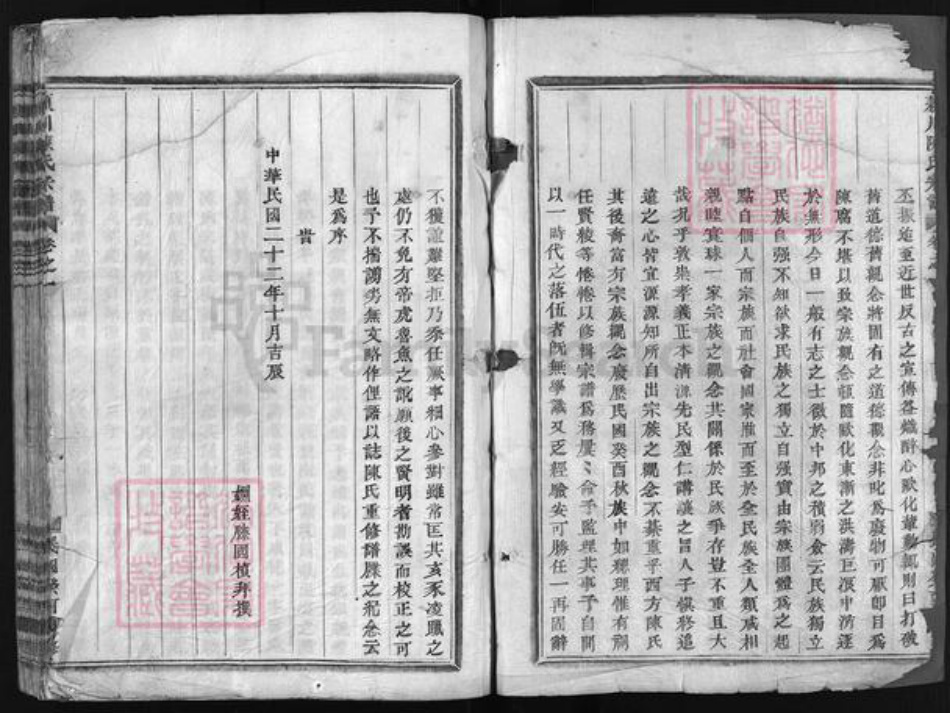 潁川陳氏宗譜
丕振迨至近世反古之宣傳益熾醉心歐化輩動輒則曰打破
舊道德舊觀念將固有之道德觀念非叱爲廢物可厭卽目爲
陳腐不堪以致宗族觀念頓隨歐化東漸之洪濤巨浪中消逐
於無形今日一般有志之士徵於中邦之積弱僉云民族獨立
民族自强不知欲求民族之獨立自强實由宗族團體爲之起
點自個人而宗族而社會國家推而至於全民族全人類咸相
親睦寰球一家宗族之觀念其關係於民族爭存豈不重且大
哉孔子敦崇孝義正本清源先民型仁講讓之旨人子愼終追
遠之心皆宜源源知所自出宗族之觀念不綦重乎西方陳氏
其後裔富有宗族觀念爰歷民國癸酉秋族中如 理惟有
任賢綾等惓惓以修輯宗譜爲務屢屢命予監理其事予自問
以一時代之落伍者旣無學識又乏經驗安可勝任一再固辭
不獲誼難堅拒乃忝任厥事細心參對雖常匡其亥豕凌躐之
處仍不免有帝虎魯魚之訛願後之賢明者勘誤而校正之可
也予不揣謭劣無文略作俚語以誌陳氏重修譜牒之紀念云
是爲序
旹
中華民國二十二年十月吉辰
姻姪滕國楨拜撰
潁川陳氏宗譜 卷之一